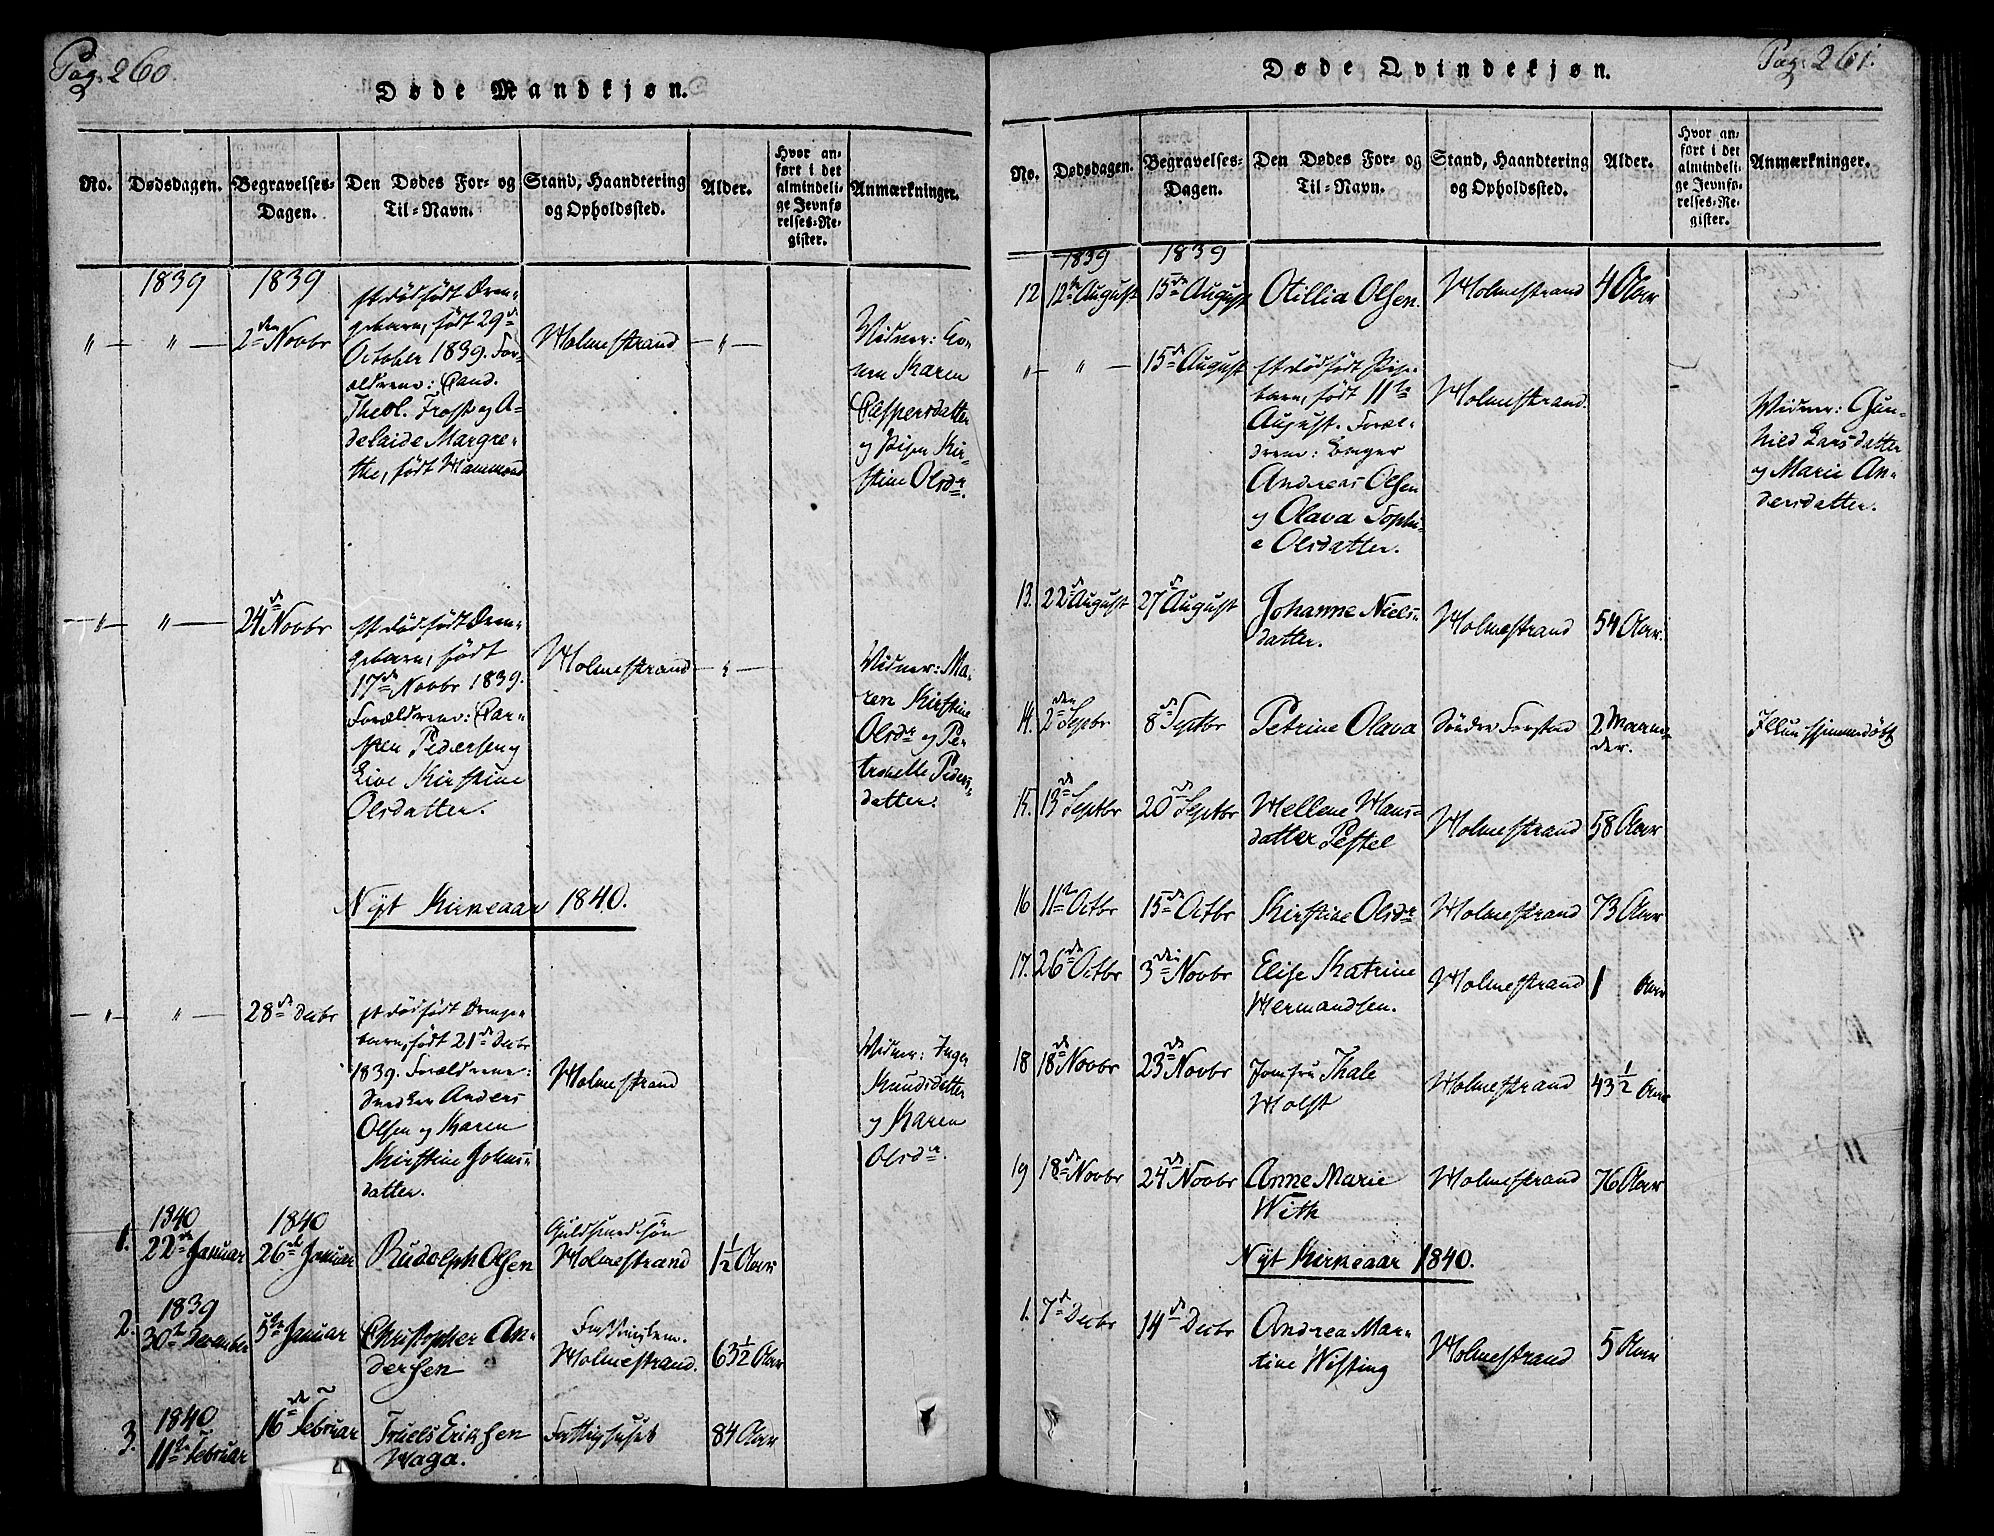 Pag. 260.
Døde Mandkjøn.
No.
Dødsdagen.
Begravelses-
Dagen.
Den Dødes For- og
Til-Navn.
Stand, Haandtering
og Opholdssted.
Alder.
Hvor an-
ført i det
almindeli-
ge Jevnfø-
relses-Re-
gister.
Anmærkninger.
1839
1839
" — " — 2den Novbr
et dødfødt Dren-
gebarn, født 29de
October 1839. For-
ældrene: Cand.
Theol. Frost og A-
delaide Margre-
the, født Hammond
Holmestrand
— " —
Vidner: Ko-
nen Karen
Caspersdatter
og Pigen Kir-
stine Olsdr.
— " — " — 24de Novbr
et dødfødt Dren-
gebarn, født
17de Novbr 1839.
Forældrene: Cas-
pen Pedersen og
Live Kirstine
Olsdatter.
Holmestrand
— " —
Vidner: Ma-
ren Kirstine
Olsdr og Pe-
tronelle Peders-
datter.
Nyt Kirkeaar 1840.
— " — " — 28de Decbr
et dødfødt Drenge-
barn, født 21de Decbr
1839. Forældrene:
Snedker Anders
Olsen og Karen
Kirstine Johns-
datter.
Holmestrand
Vidner: Inger
Knudsdatter
og Karen
Olsdr.
1.
1840
22de Januar
1840
26de Januar
Rudolph Olsen
Guldsmedsøn
Holmestrand
1½ Aar
2.
1839
30te December
5te Januar
Christopher An-
dersen
Holmestrand.
63½ Aar
3.
1840
11te Februar
16de Februar
Truels Eriksen
Haga.
Fattighuset
84 Aar
Pag. 261.
Døde Qvindekjøn.
No.
Dødsdagen.
Begravelses-
Dagen.
Den Dødes For- og
Til-Navn.
Stand, Haandtering
og Opholdssted.
Alder.
Hvor an-
ført i det
almindeli-
ge Jevnfø-
relses-Re-
gister.
Anmærkninger.
1839
1839
12 12te August 15de August Otillia Olsen. Holmestrand 4 Aar
" — " — 15de August
et dødfødt Pige-
barn, født 11te
August. Foræl-
drene: Bager
Andreas Olsen
og Olava Sophi-
e Olsdatter.
Holmestrand.
Vidner: Gun-
hild Larsdatter
og Marie An-
dersdatter.
13. 22de August 27de August Johanne Niels-
datter.
Holmestrand 54 Aar.
14. 2den Septbr 8de Septbr Petrine Olava Søndre Forstad 2 Maane-
der.
15. 13de Septbr 20de Septbr Hellene Hans-
datter Pestel
Holmestrand 58 Aar
16 11te Octbr 15de Octbr Kirstine Olsdr Holmestrand 73 Aar
17. 26de Octbr 3den Novbr Elise Katrine
Hermandsen.
Holmestrand 1 Aar
18 18de Novbr 23de Novbr Jomfru Thale
Holst
Holmestrand 43½ Aar
19 18de Novbr 24de Novbr Anne Marie
With
Holmestrand 76 Aar
Nyt Kirkeaar 1840.
1. 7de Decbr 14de Decbr Andrea Mar-
tine Wisting
Holmestrand 5 Aar